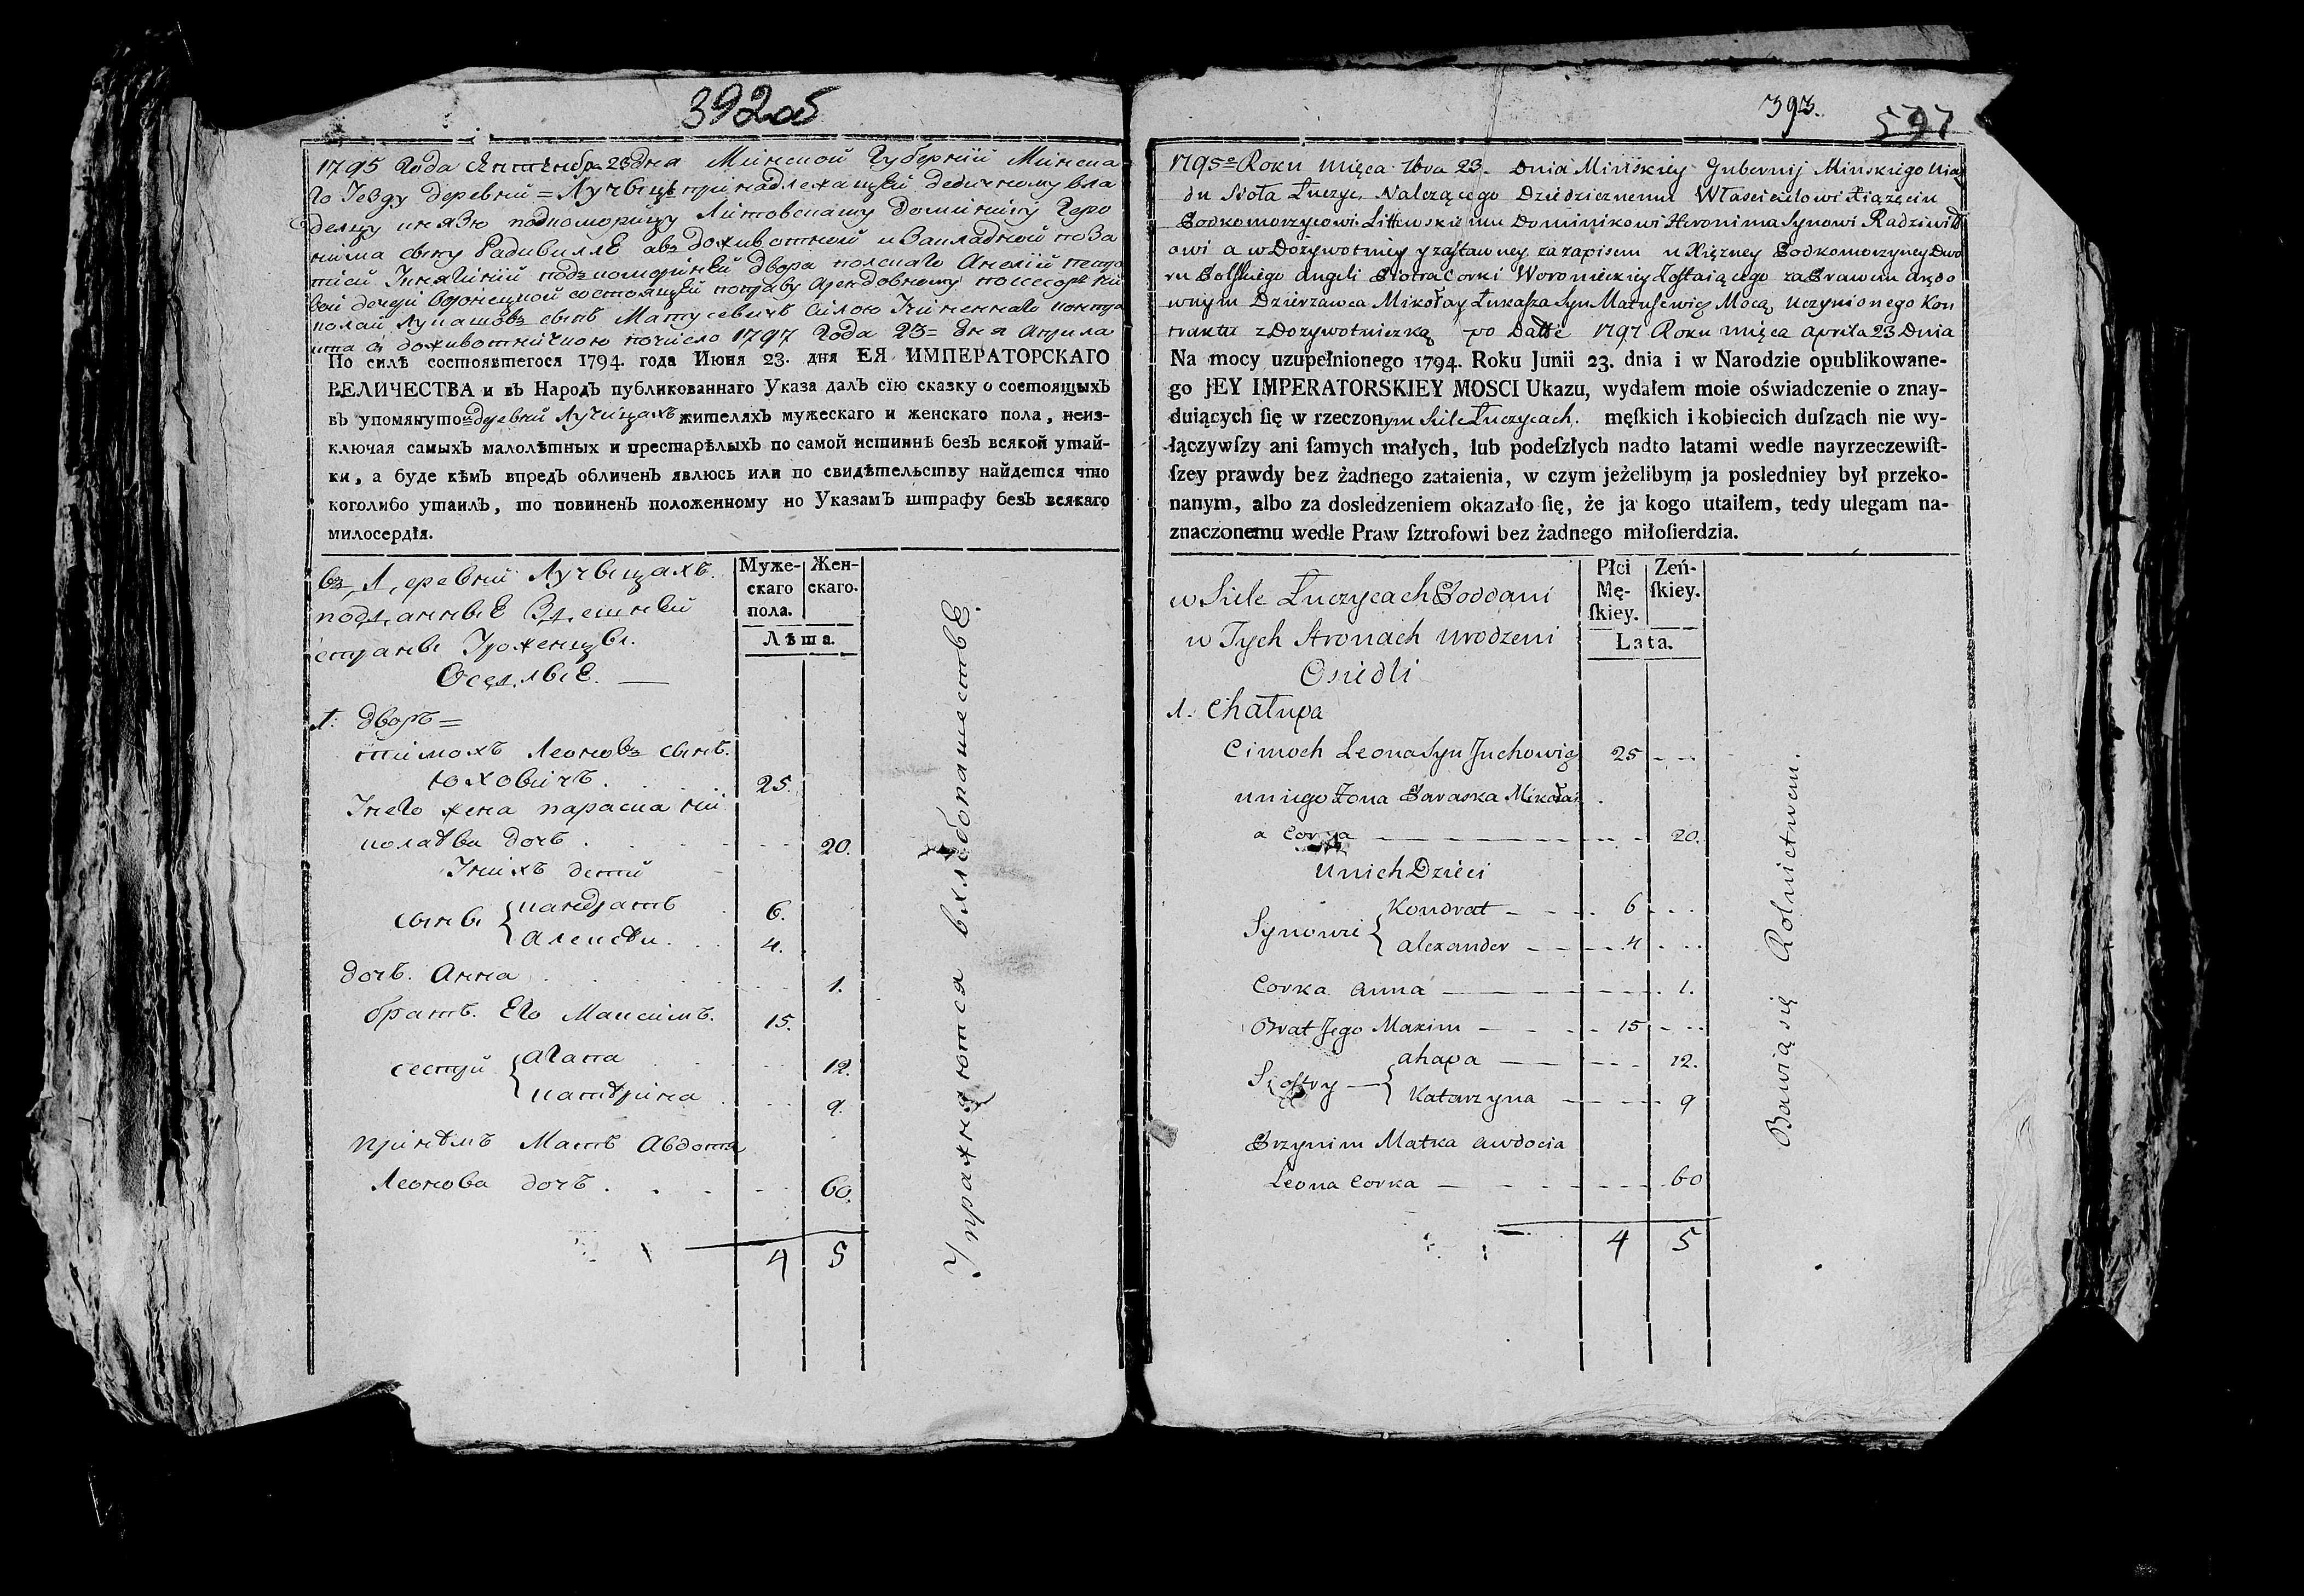 392об
1795 Года Септембра 23 дня Минской Губернии Минска
го Уезду деревни = Лучыцъ принадлежащей дедичному вла
дельцу князю подкоморицу Литовскому Доминику Геро
нима сыну Радивиллѣ авъ доживотной и Закладной по За
двора Анелии
дочери Воронецкой состоящей
колай Лукашовъ сынъ Матусевичъ силою
доживотничкою 1797 Года 23= дня Априла
По силѣ состоявшегося 1794. года Июня 23. дня ЕЯ ИМПЕРАТОРСКАГО
ВЕЛИЧЕСТВА и въ Народъ публикованнаго Указа далъ сїю сказку о состоящыхъ
въ упомянутой деревни Лучицахъ жителяхъ мужескаго и женскаго пола, неиз-
ключая самыхъ малолѣтныхъ и престарѣлыхъ по самой истиннѣ безъ всякой утай-
ки, а буде кѣмъ впредъ обличенъ явлюсь или по свидѣтельству найдется что
коголибо утаилъ, то повиненъ положенному по Указамъ штрафу безъ всякаго
милосердїя.
въ Деревни Лучыцахъ.
подданные Здешней
страны Уроженцы.
Оседлые. —
Муже-
скаго
пола.
Жен-
скаго.
Лѣта.
1: дворъ =
тимохъ Леоновъ сынъ.
Юховичъ. 25.
Унего жена параска ни
колаева дочь . 20.
Унихъ дети
сыны { кандратъ 6.
алексей . 4.
дочь. Анна . 1.
братъ. Его Максимъ. 15.
сестри { агапа 12.
катерина 9.
принемъ Мать Авдотя
Леонова дочь . 60.
4 5
Упражняются вхлебопашестве.
393.
597
1795 Roku Mięca 7bra 23. Dnia Minskiey Gubernij Minskiego Uiaz
du Sioła Łuczyc, Nalezącego Dziedzicznemu Włascicielowi Xiążęciu
Podkomorzycowi Littewskiemu Dominikowi Hieronima Synowi Radziwiłł
owi a w Dozywotniey y zastawney za zapisem u Xięzney Podkomorzyney Dwo
ru Polskiego Angeli Piotra Corki Woronieckiey Zostaiącego za Prawem arędo
wnym Dzierzawca Mikołay Łukasza Syn Matusewicz Mocą Uczynionego Kon
traktu z Dozywotniczką po Datte 1797 Roku Mięca Aprila 23 Dnia
Na mocy uzupełnionego 1794. Roku Junii 23. dnia i w Narodzie opublikowane-
go JEY IMPERATORSKIEY MOSCI Ukazu, wydałem moie oświadczenie o znay-
duiących ſię w rzeczonym Siele Łuczycach. męſkich i kobiecich duſzach nie wy-
łączywſzy ani ſamych małych, lub podeſzłych nadto latami wedle nayrzeczewiſt-
ſzey prawdy bez żadnego zataienia, w czym jeżelibym ja posledniey był przeko-
nanym, albo za dosledzeniem okazało ſię, że ja kogo utaiłem, tedy ulegam na-
znaczonemu wedle Praw ſztrofowi bez żadnego miłoſierdzia.
w Siele Łuczycach Poddani
w Tych Stronach Urodzeni
Osiedli
Płci
Mę-
ſkiey.
Zeń-
ſkiey.
Lata.
1. Chałupa
Cimoch Leona Syn Juchowicz 25
Uniego Żona Paraska Mikołai
a Corka 20.
Unich Dzieci
Synowie { Kondrat 6
Alexander 4
Corka Anna 1.
Brat Jego Maxim 15
Siostry { Ahapa 12.
Katarzyna 9
Przynim Matka Awdocia
Leona Corka 60
4 5
Bawią się Rolnictwem.